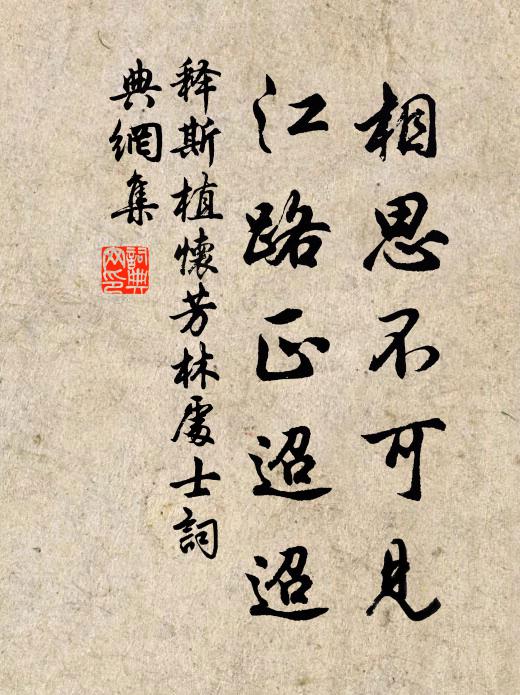 相思不可见
江路正迢迢
释斯植懷芳林處士詞
典網集
詞典